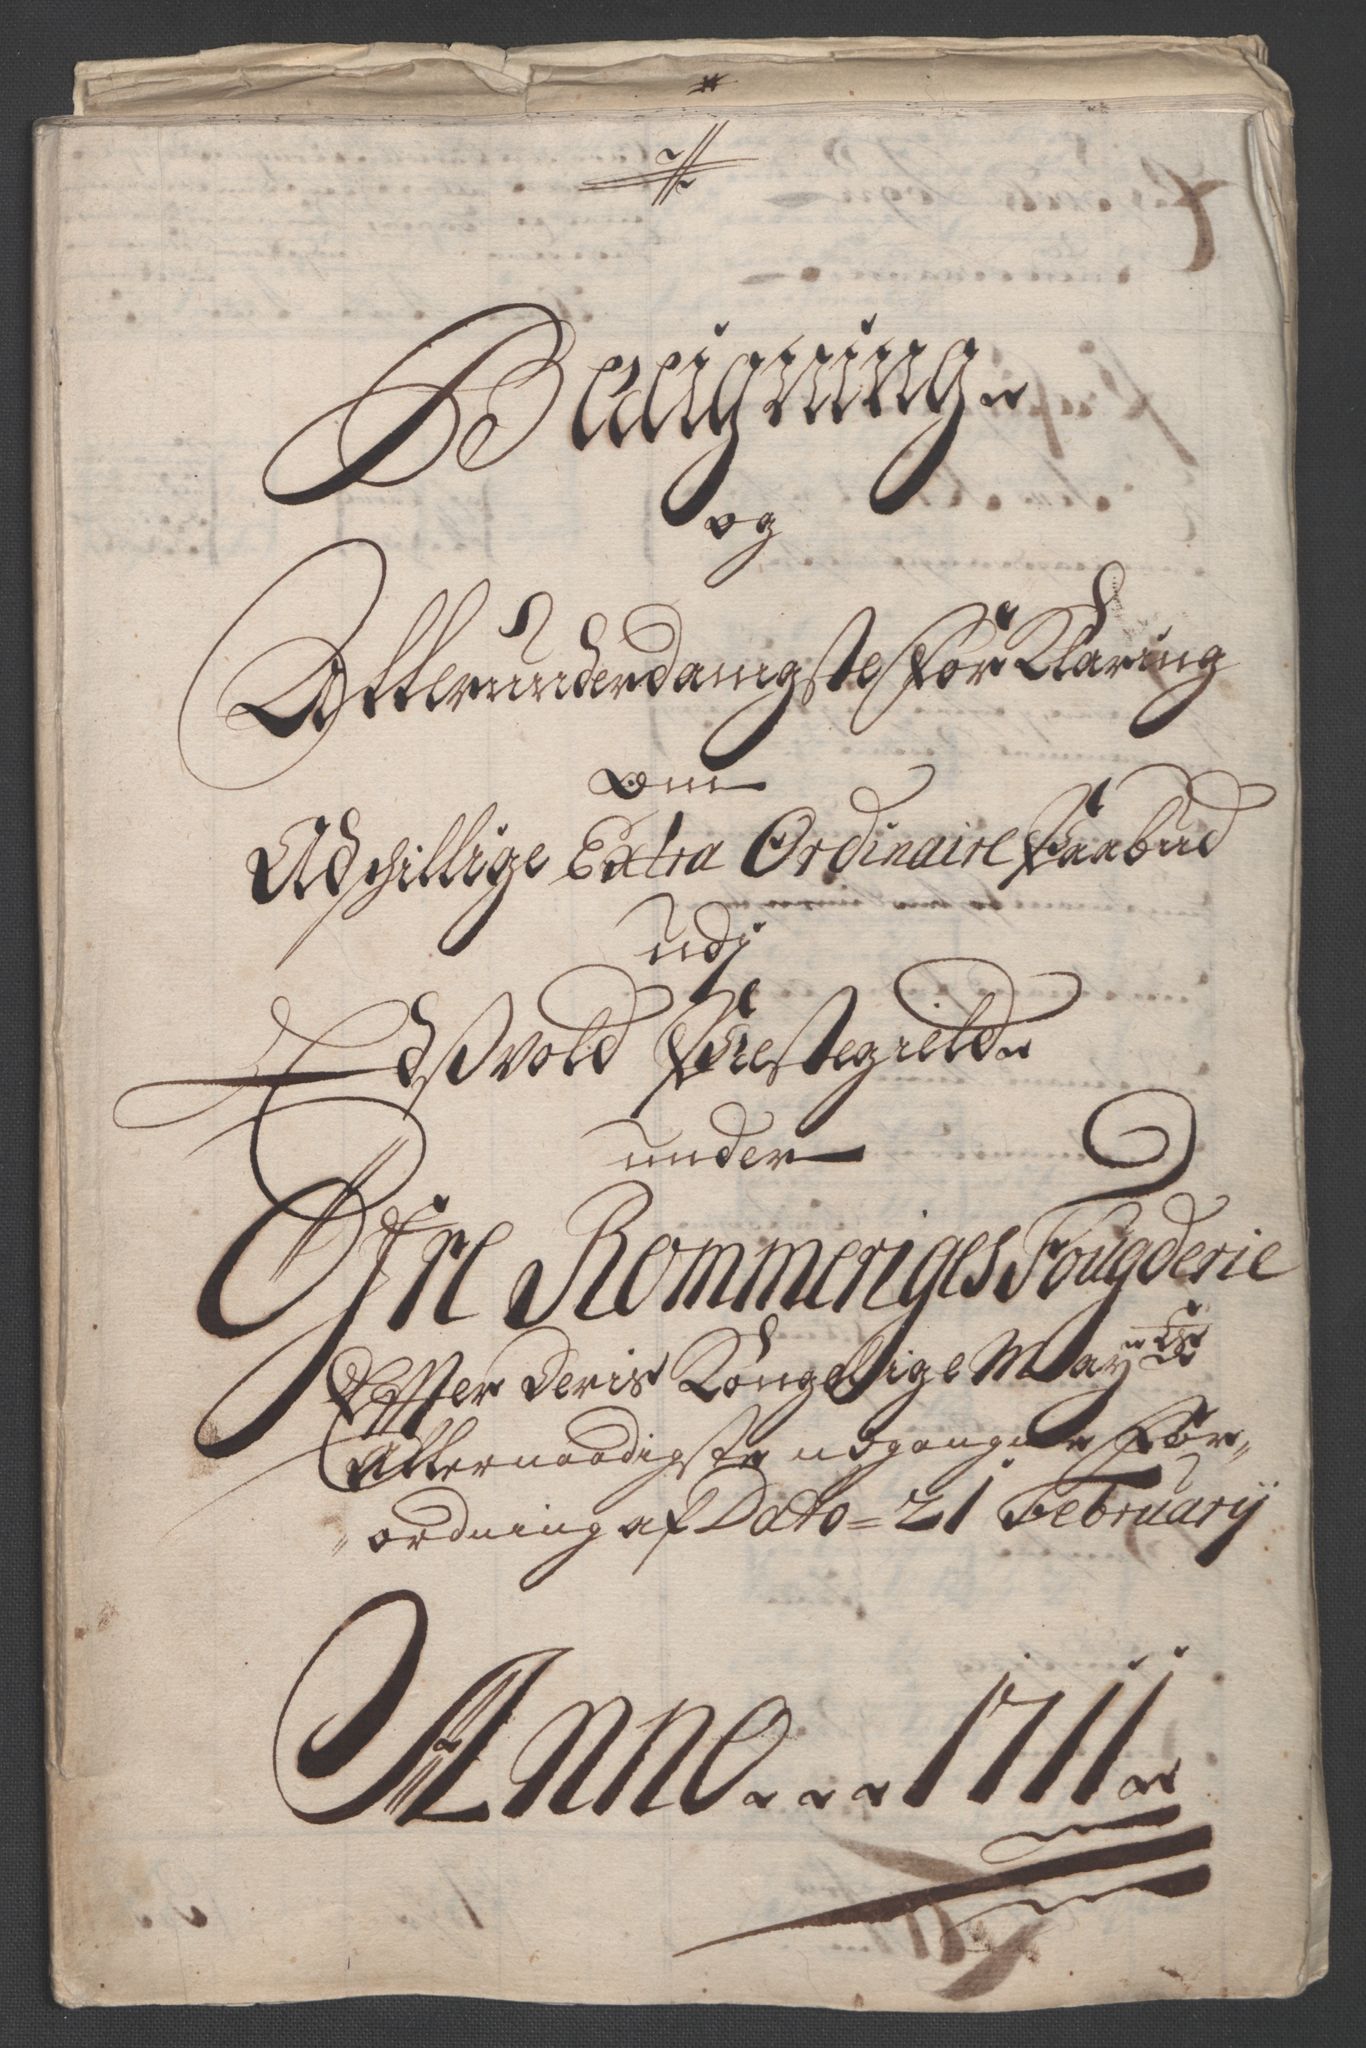 Beleigning
og
Allerunderdanigste forKlaring
om
Adschillige Extra Ordinaire Paabud
udj
Edsvold Præstegield
under
Øfre Rommeriges Fougderie
Effter Deris Kongellige Mayts
Allernaadigste udgangne For-
ordning af Dato 21 February
Anno 1711